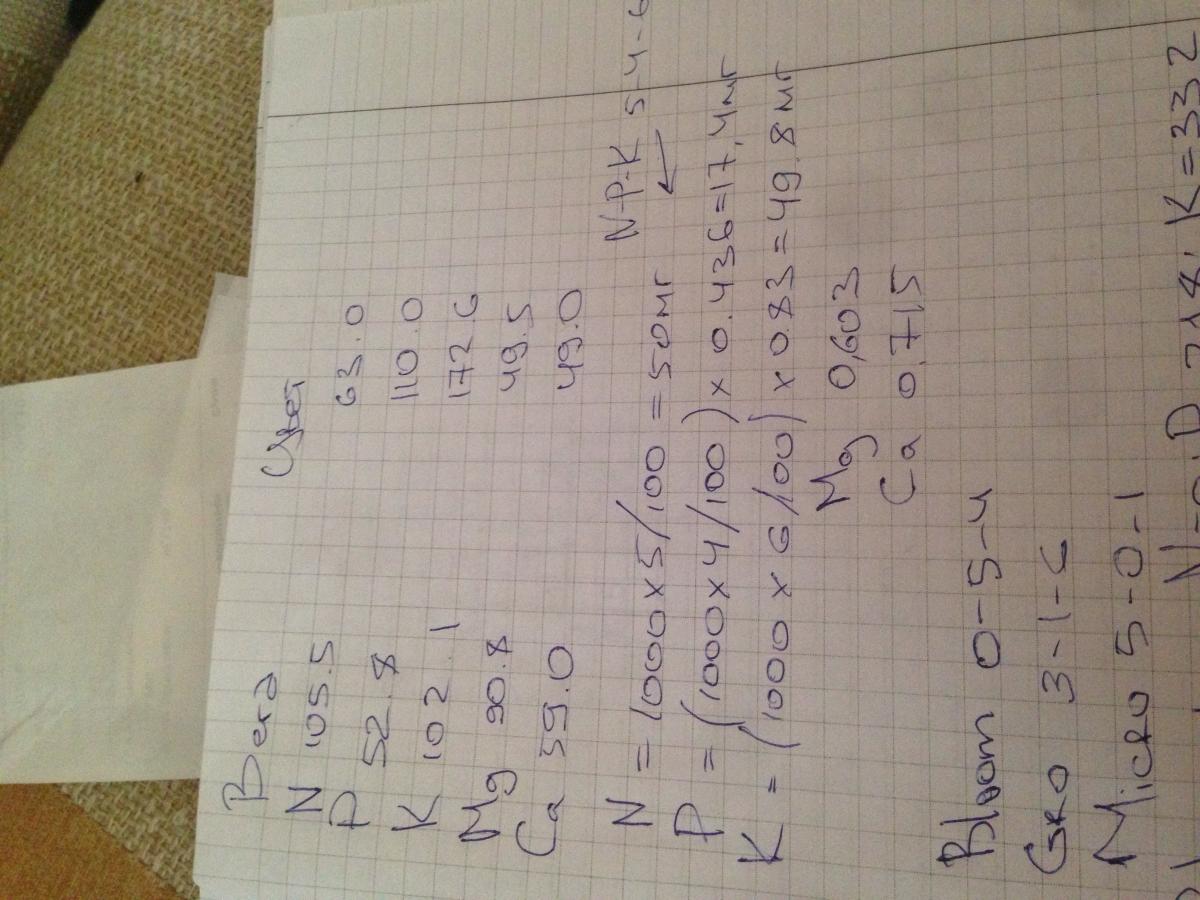 Вега Цвет
N 105.5 63.0
P 52.8 110.0
K 102.1 172.6
Mg 90.8 49.5
Ca 59.0 49.0
N-P-K 5-4-6
N = 1000x5/100 = 50мг
P = (1000x4/100) x 0.436=17,4мг
K = (1000 x 6/100) x 0.83=49.8мг
Mg 0,603
Ca 0,715
Bloom 0-5-4
Gro 3-1-6
Micro 5-0-1
K=332